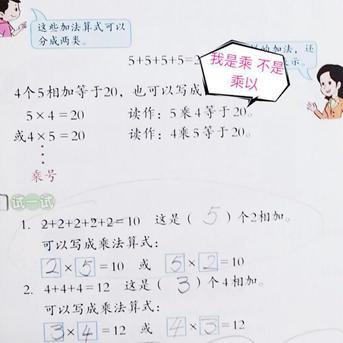 这些加法算式可以
分成两类。
的加法，还
示。
5+5+5+5=2
我是乘 不是
乘以
4个5相加等于20，也可以写成
5×4=20 读作：5乘4等于20。
或4×5=20 读作：4乘5等于20。
乘号
试一试
1. 2+2+2+2+2=10 这是（5）个2相加。
可以写成乘法算式：
2×5=10 或 5×2=10
2. 4+4+4=12 这是（3）个4相加。
可以写成乘法算式：
3×4=12 或 4×3=12